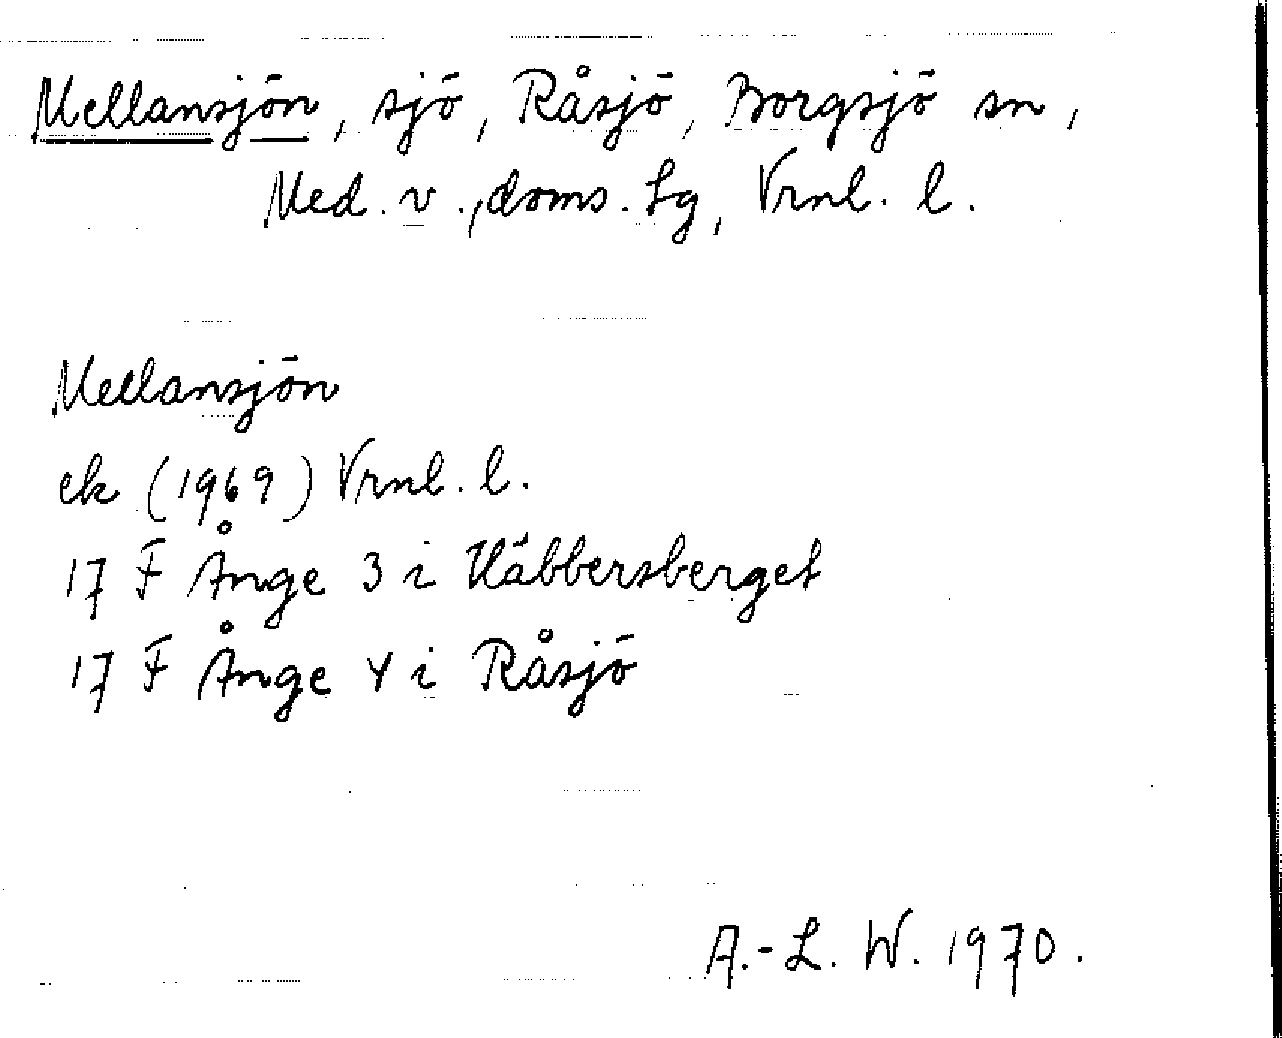 Mellansjön, sjö, Råsjö, Borgsjö sn,
Med. v., doms. hg, Vrnl. l.
Mellansjön
ek (1969) Vrnl. l.
17 F Ånge 3 i Häbbersberget
17 F Ånge 4 i Råsjö
A.-L. W. 1970.